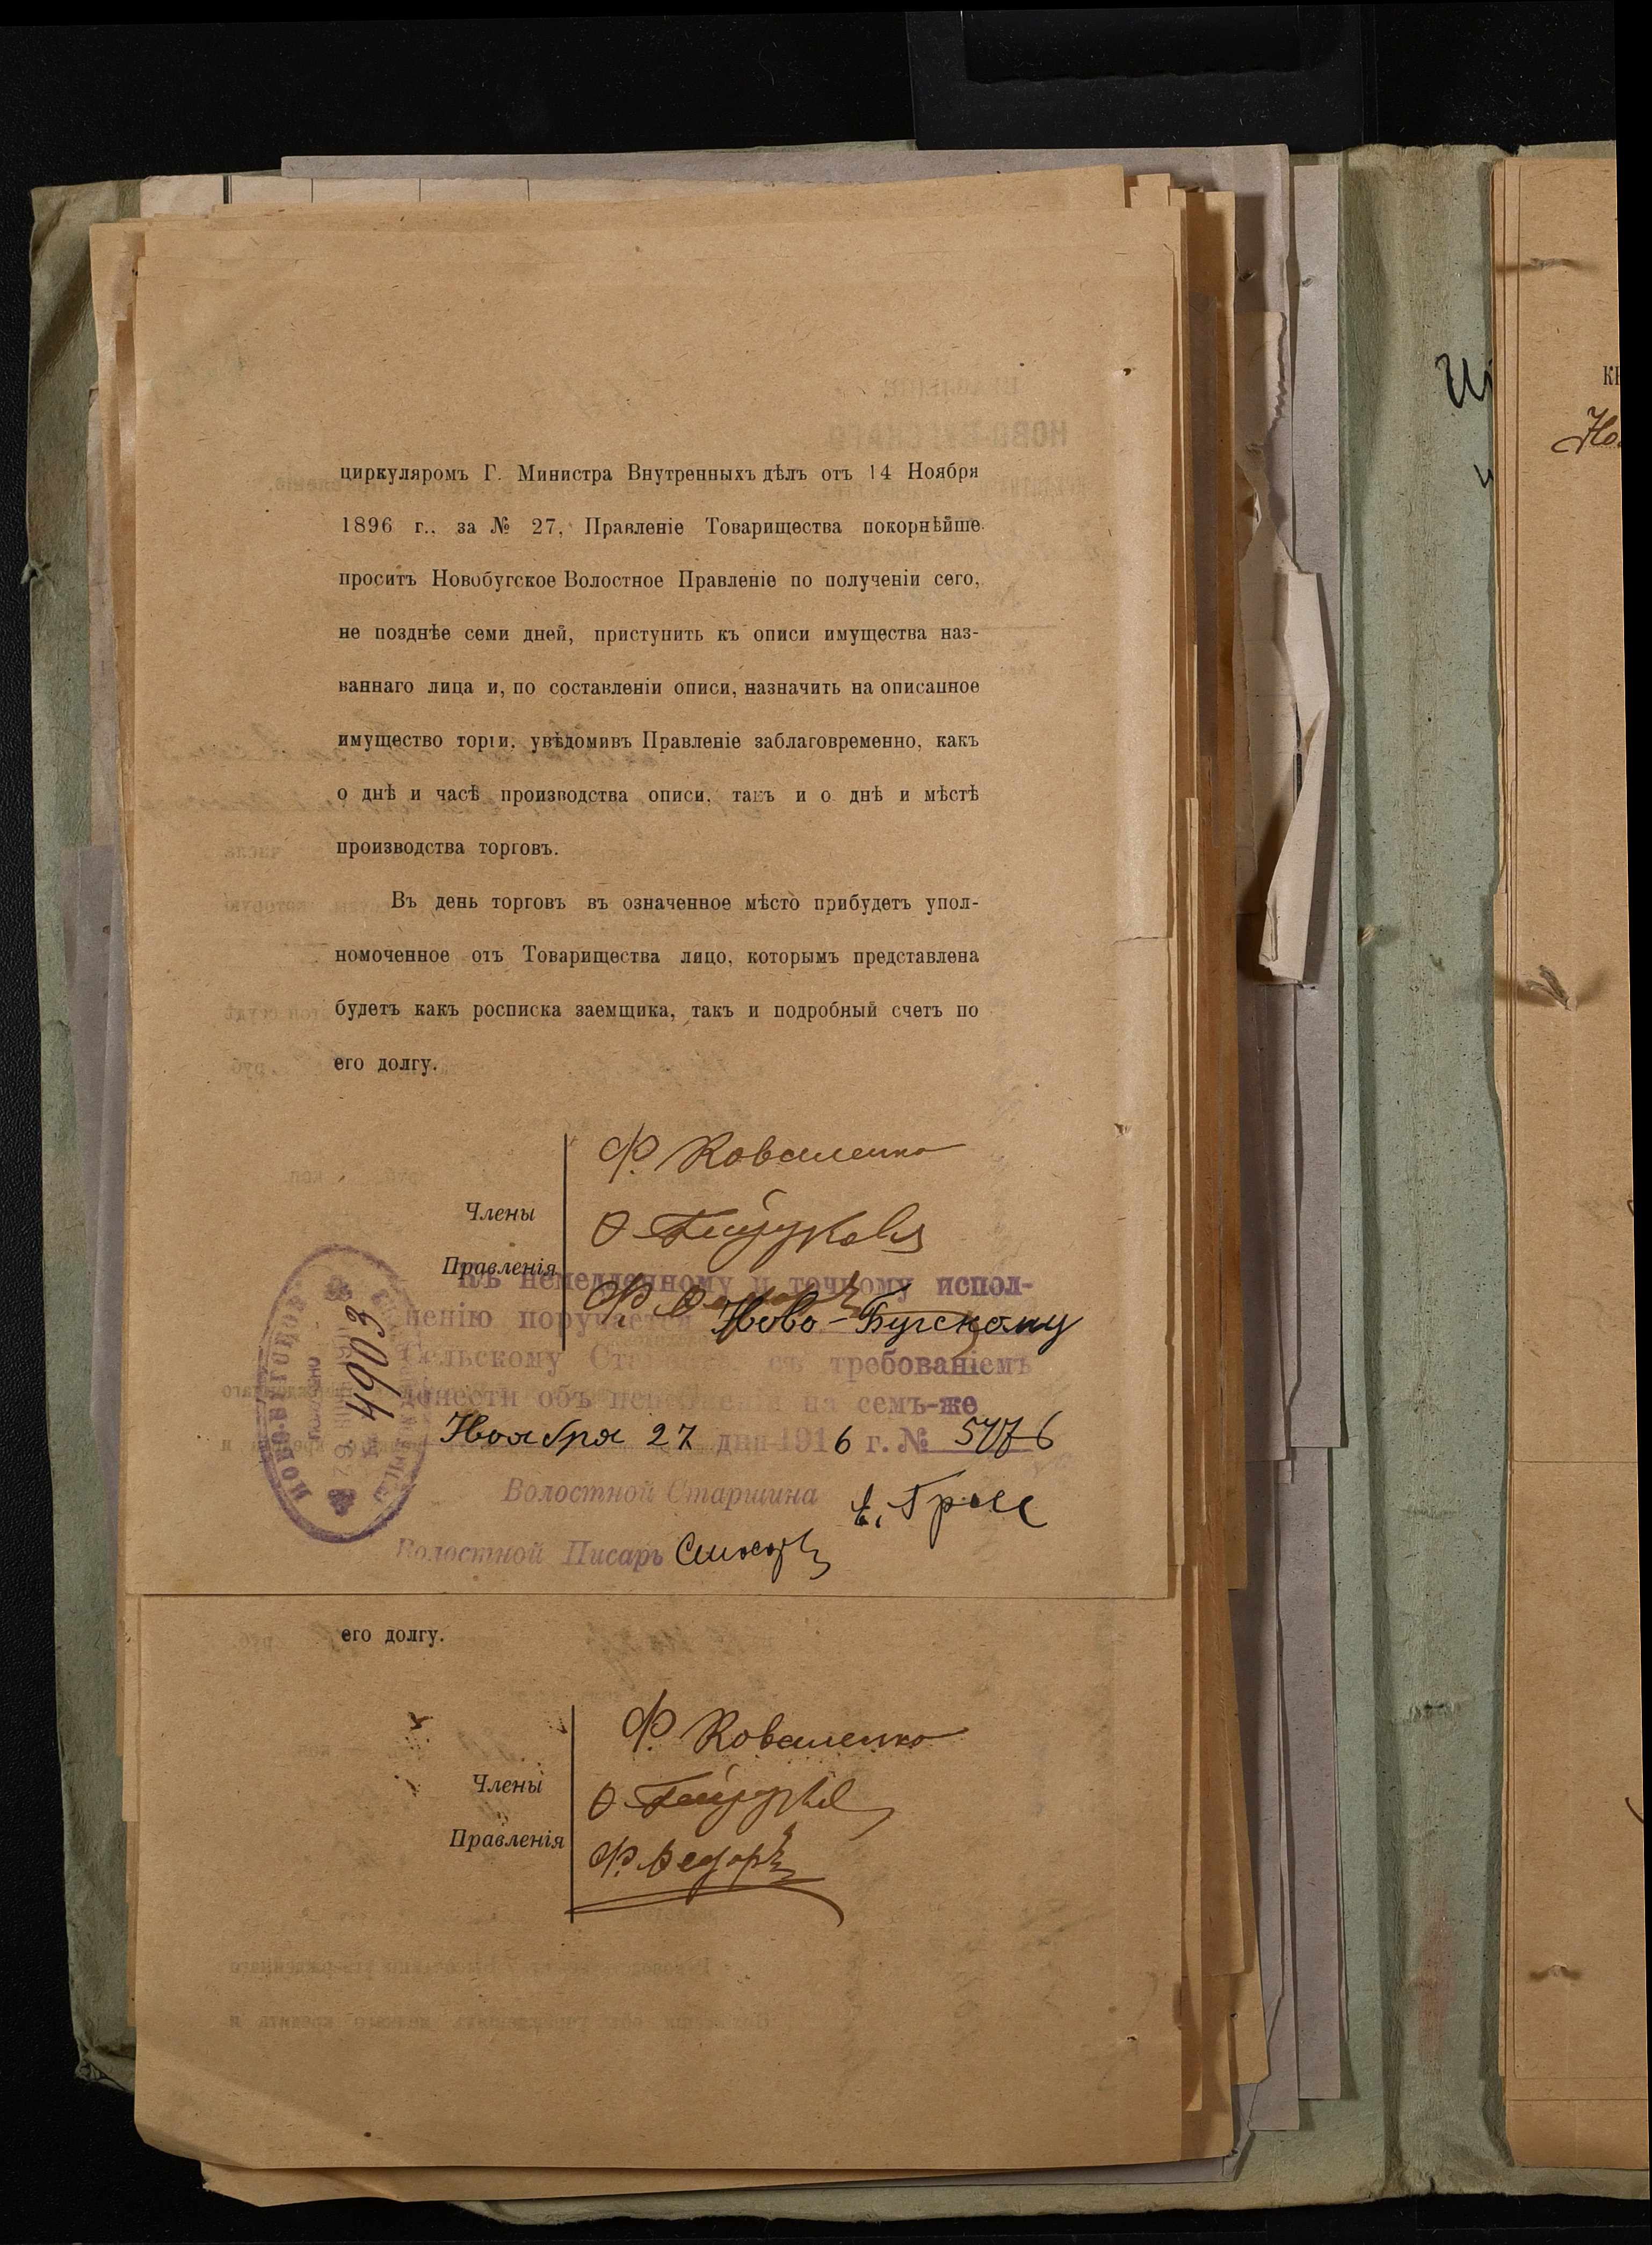 циркуляромъ Г. Министра Внутренныхъ дѣлъ отъ 14 Ноября
1896 г., за № 27, Правленіе Товарищества покорнѣйше
проситъ Новобугское Волостное Правленіе по полученіи сего,
не позднѣе семи дней, приступить къ описи имущества наз-
ваннаго лица и, по составленіи описи, назначить на описанное
имущество торги, увѣдомивъ Правленіе заблаговременно, какъ
о днѣ и часѣ производства описи, такъ и о днѣ и мѣстѣ
производства торговъ.
Въ день торговъ въ означенное мѣсто прибудетъ упол-
номоченное отъ Товарищества лицо, которымъ представлена
будетъ какъ росписка заемщика, такъ и подробный счетъ по
его долгу.
Ф. Коваленко
Члены
Правленія
Къ немедленному и точному испол-
ненію поручается Ново-Бугскому
Сельскому Старостѣ съ требованіемъ
донести объ исполненіи на семъ-же
Ноября 27 дня 1916 г. № 5476
Волостной Старшина
Волостной Писарь
4903
его долгу.
Ф. Коваленко
Члены
Правленія
Ф. Федоръ